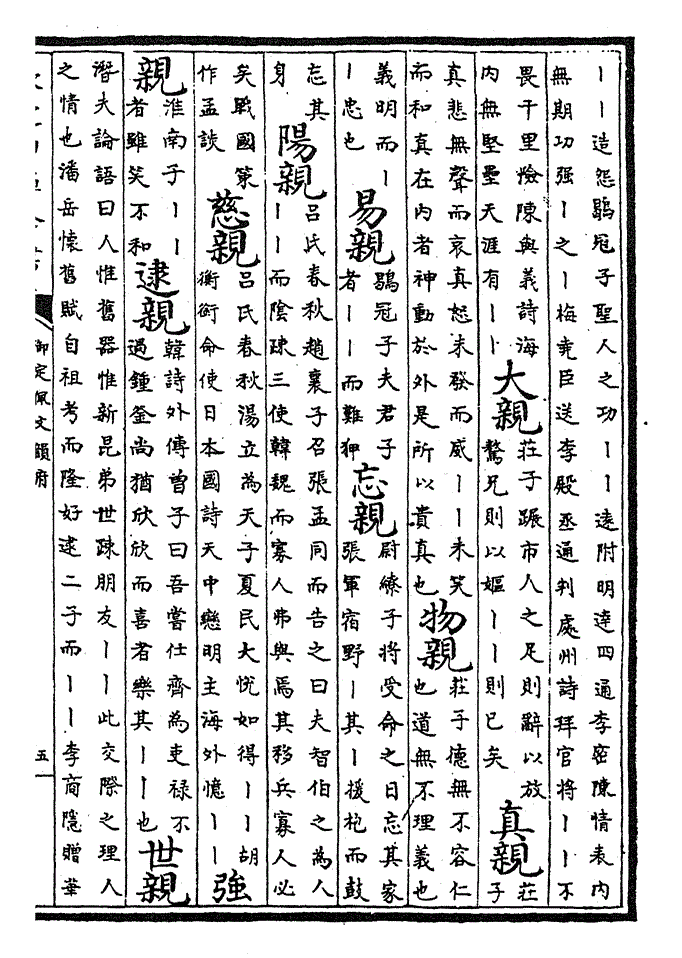 丨丨造怨鶡冠子聖人之功丨丨遠附明達四通李密陳情表内
無期功强丨之丨梅堯臣送李殿丞通判處州詩拜官將丨丨不
畏千里險陳與義詩海
内無堅壘天涯有丨丨
大親
莊子蹍市人之足則辭以放
驁兄則以嫗丨丨則已矣
真親
莊
子
真悲無聲而哀真怒未發而威丨丨未笑
而和真在内者神動於外是所以貴真也
物親
莊子德無不容仁
也道無不理義也
義明而丨
丨忠也
易親
鶡冠子夫君子
者丨丨而難狎
忘親
尉繚子將受命之日忘其家
張軍宿野丨其丨援枹而鼓
忘其
身
陽親
吕氏春秋趙襄子召張孟同而告之曰夫智伯之為人
丨丨而陰疎三使韓魏而寡人弗與焉其移兵寡人必
矣戰國策
作孟談
慈親
吕氏春秋湯立為天子夏民大悦如得丨丨胡
衡銜命使日本國詩天中戀明主海外憶丨丨
強
親
淮南子丨丨
者雖笑不和
逮親
韓詩外傳曾子曰吾嘗仕齊為吏禄不
過鍾釜尚猶欣欣而喜者樂其丨丨也
世親
潛夫論語曰人惟舊器惟新昆弟世疎朋友丨丨此交際之理人
之情也潘岳懷舊賦自祖考而隆好逮二子而丨丨李商隱贈華
御定佩文韻府
五